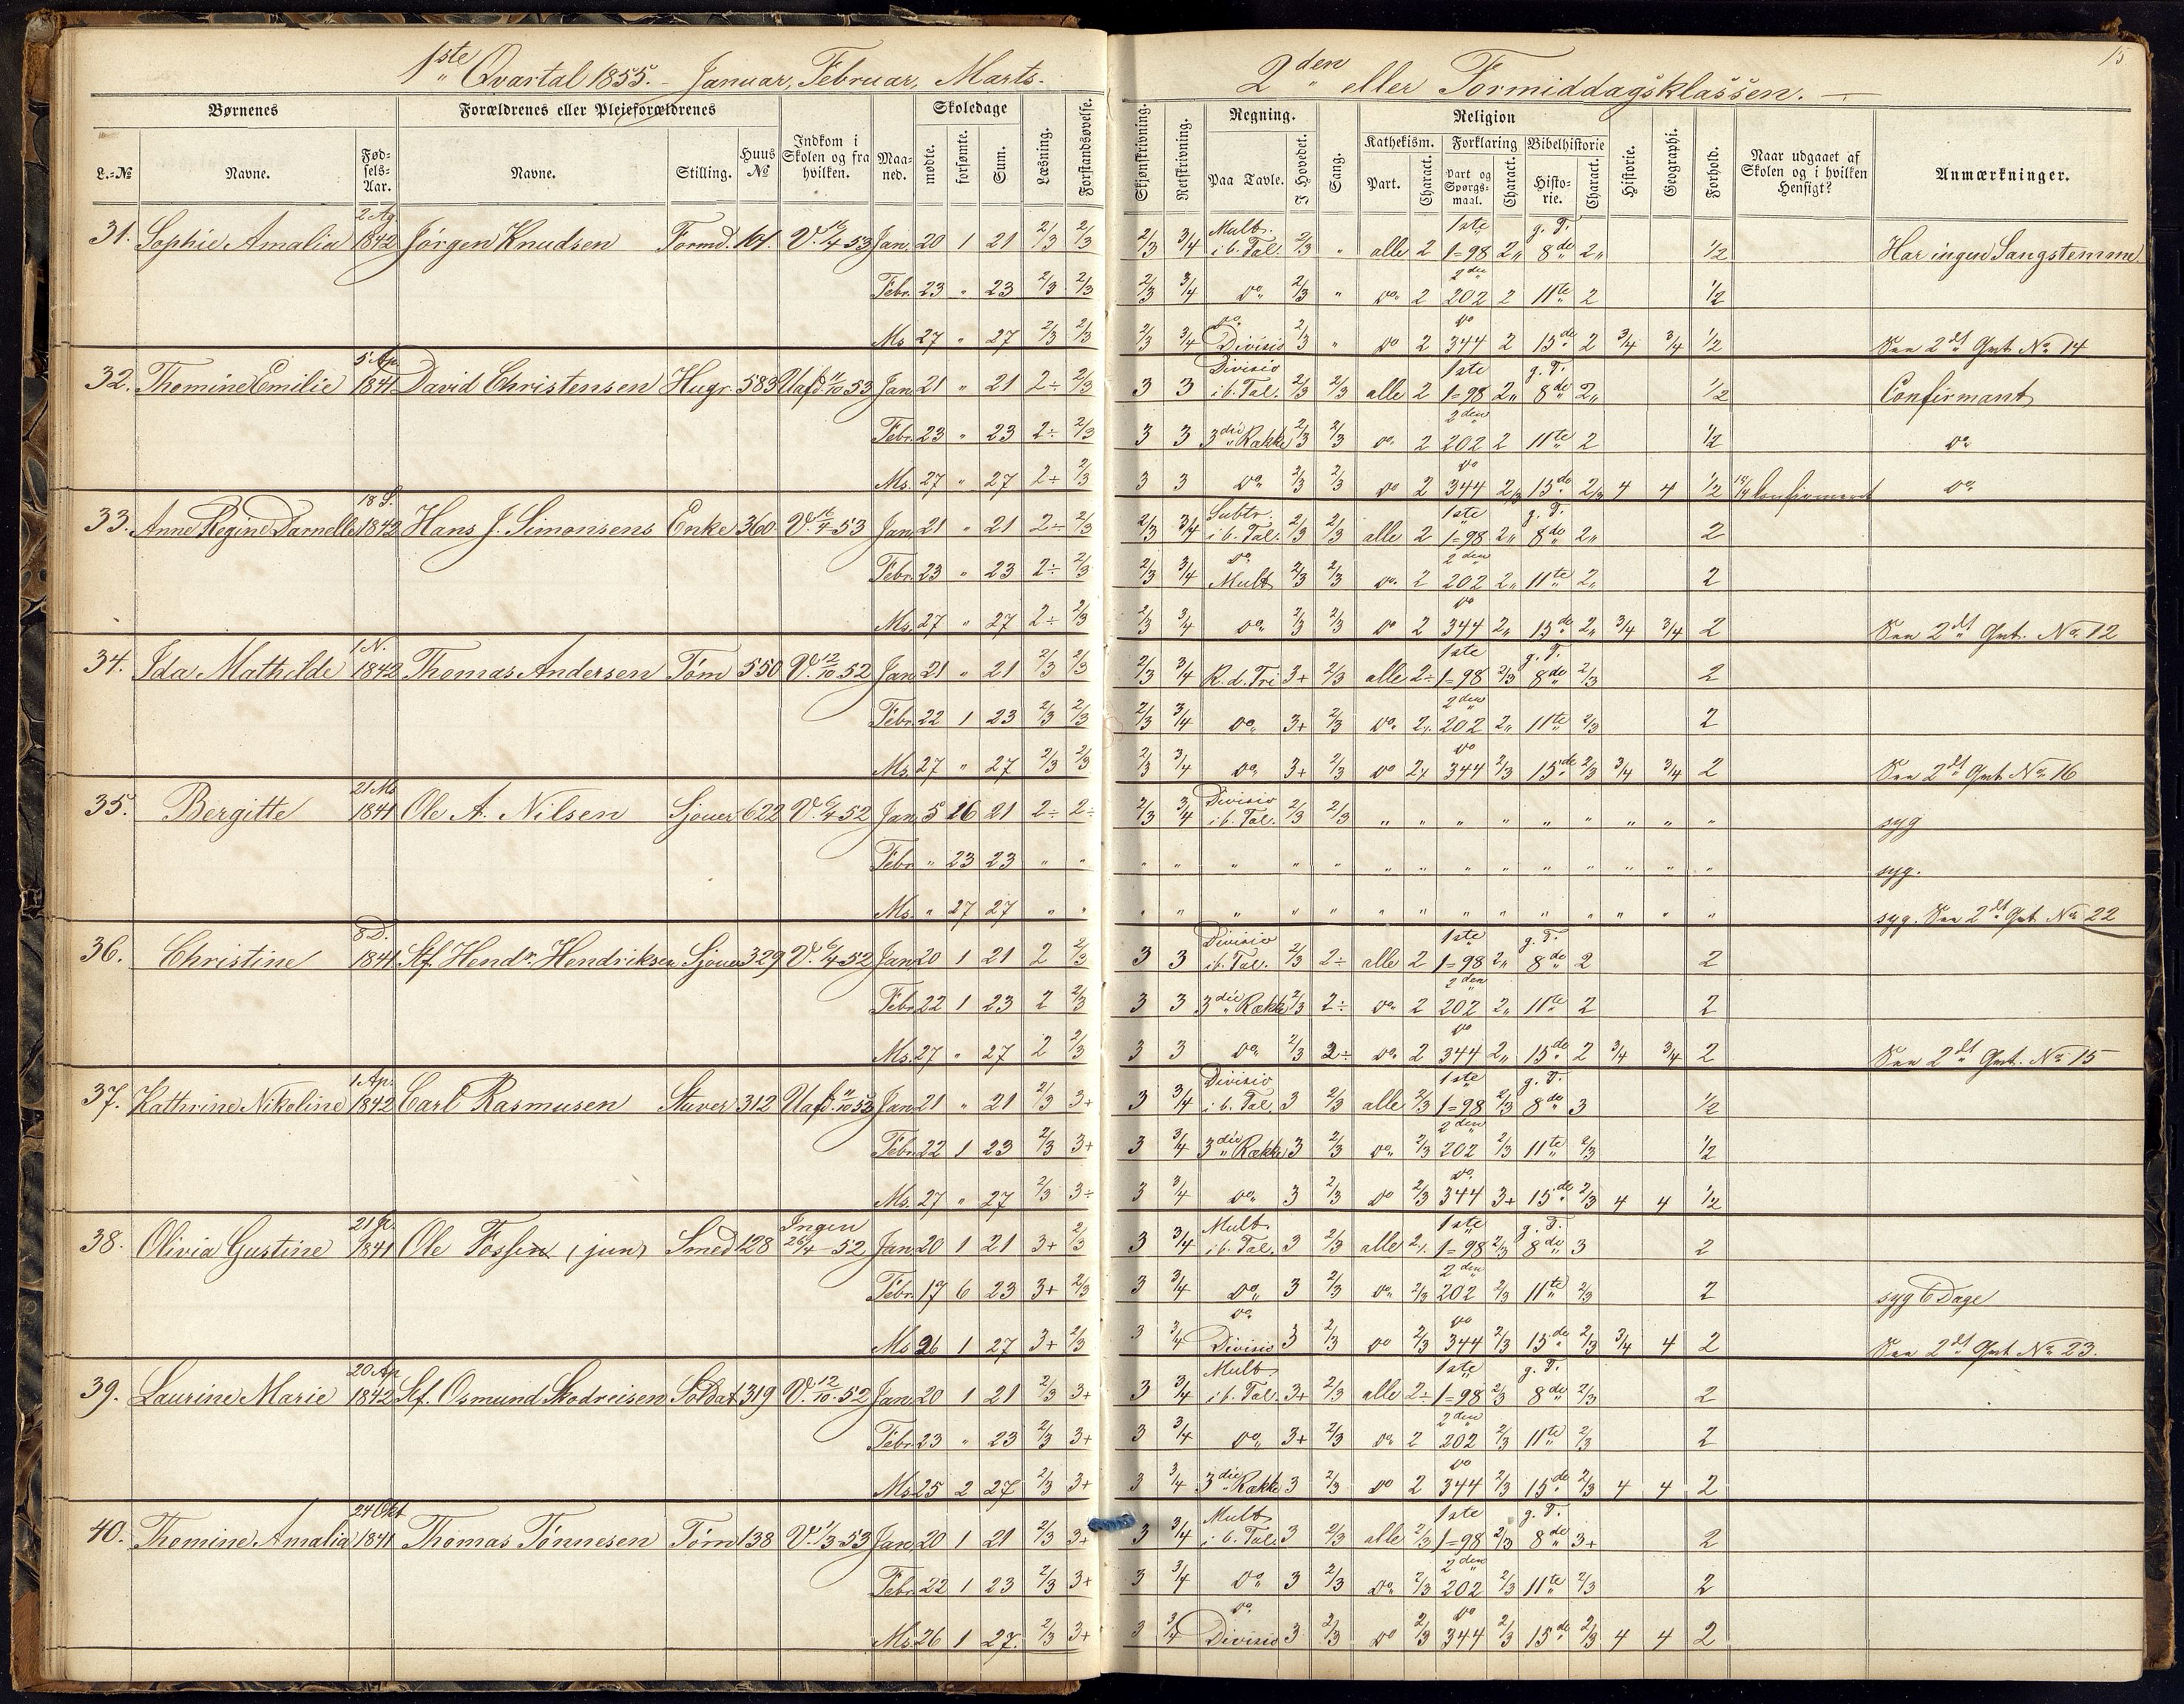 1ste Qvartal 1855. - Januar, Februar, Marts.
2den eller Formiddagsklassen. —
15
Børnenes
Forældrenes eller Plejeforældrenes
Skoledage
L.-№
Navne.
Fød-
sels-
Aar.
Navne.
Stilling.
Huus
№
Indkom i
Skolen og fra
hvilken.
Maa-
ned.
mødte.
forsømte.
Sum.
Læsning.
Forstandsøvelse.
Skjønskrivning.
Retskrivning.
Regning.
Paa Tavle.
I Hovedet.
Sang.
Religion
Kathekism.
Part.
Charact.
Forklaring
Part og
Spørgs-
maal.
Charact.
Bibelhistorie
Histo-
rie.
Charact.
Historie.
Geographi.
Forhold.
Naar udgaaet af
Skolen og i hvilken
Hensigt?
Anmærkninger.
2 Ag. Mult. 1ste g. T.
31. Sophie Amalia 1842 Jørgen Knudsen Formd. 101. V. 19/4 53 Jan. 20 1 21 2/3 2/3 2/3 3/4 i b. Tal. 2/3 " alle 2 1=98 2" 8de 2" 1/2 Har ingen Sangstemme
2den
Febr. 23 " 23 2/3 2/3 2/3 3/4 do 2/3 " do 2 202 2 11te 2 1/2
do do
Ms 27 " 27 2/3 2/3 2/3 3/4 Divisio 2/3 " do 2 344 2 15de 2 3/4 3/4 1/2 See 2dt Qvt No 14
5 Ap. Divisio 1ste g. T.
32. Thomine Emilie 1841 David Christensen Hugr. 583 Uafd. 11/10 53 Jan 21 " 21 2÷ 2/3 3 3 i b. Tal. 2/3 2/3 alle 2 1=98 2" 8de 2" 1/2 Confirmant
2den
Febr. 23 " 23 2÷ 2/3 3 3 3die Række 2/3 2/3 do 2 202 2 11te 2 1/2 do
do
Ms. 27 " 27 2÷ 2/3 3 3 do 2/3 2/3 do 2 344 2/3 15de 2/3 4 4 1/2 Confirmeret do
18 S. Subtr. 1ste g. T.
33. Anne Regine Darnelle 1842 Hans J. Simonsens Enke 360 V. 16/4 53 Jan 21 " 21 2÷ 2/3 2/3 3/4 i b. Tal. 2/3 2/3 alle 2 1=98 2" 8de 2" 2
do 2den
Febr. 23 " 23 2÷ 2/3 2/3 3/4 Mult 2/3 2/3 do 2 202 2" 11te 2" 2
do
Ms. 27 " 27 2÷ 2/3 2/3 3/4 do 2/3 2/3 do 2 344 2" 15de 2" 3/4 3/4 2 See 2dt Qvt. No 12
1 N. 1ste g. T.
34. Ida Mathilde 1842 Thomas Andersen Tøm 550 V. 12/10 52 Jan 21 " 21 2/3 2/3 2/3 3/4 R. d. Tri 3+ 2/3 alle 2÷ 1=98 2/3 8de 2/3 2
2den
Febr. 22 1 23 2/3 2/3 2/3 3/4 do 3+ 2/3 do 2÷ 202 2" 11te 2/3 2
do
Ms. 27 " 27 2/3 2/3 2/3 3/4 do 3+ 2/3 do 2÷ 344 2/3 15de 2/3 3/4 3/4 2 See 2dt Qvt No 16
21 Ms Divisio
35. Bergitte 1841 Ole A. Nilsen Sjouer 622 V. 6/4 52 Jan 5 16 21 2÷ 2÷ 2/3 3/4 i b. Tal. 2/3 2/3 " " " " " " " " " syg
Febr " 23 23 " " " " " " " " " " " " " " " " syg.
Ms. " 27 27 " " " " " " " " " " " " " " " " syg. See 2dt Qvt No 22
8 D. Divisio 1ste g. T.
36. Christine 1841 Stf. Hendr. Hendriksen Sjouer 329 V. 6/4 52 Jan 20 1 21 2 2/3 3 3 i b. Tal. 2/3 2÷ alle 2 1=98 2" 8de 2 2
2den
Febr. 22 1 23 2 2/3 3 3 3die Række 2/3 2÷ do 2 202 2" 11te 2 2
do
Ms. 27 " 27 2 2/3 3 3 do 2/3 2÷ do 2 344 2" 15de 2 3/4 3/4 2 See 2dt Qvt. No 15
1 Ap. Divisio 1ste g. T.
37. Kathrine Nikoline 1842 Carl Rasmusen Stuver 312 Uafd. 11/10 53 Jan 21 " 21 2/3 3+ 3 3/4 i b. Tal. 3 2/3 alle 2/3 1=98 2/3 8de 3 1/2
2den
Febr. 22 1 23 2/3 3+ 3 3/4 3die Række 3 2/3 do 2/3 202 2/3 11te 2/3 1/2
do
Ms. 27 " 27 2/3 3÷ 3 3/4 do 3 2/3 do 2/3 344 3+ 15de 2/3 4 4 1/2
Ingen Mult. 1ste g. T.
38. Olivia Gustine 1841 Ole Fossen (jun) Smed 128 26/4 52 Jan. 20 1 21 3+ 2/3 3 3/4 i b. Tal. 3 2/3 alle 2÷ 1=98 2/3 8de 3 2
2den
Febr. 17 6 23 3+ 2/3 3 3/4 do 3 2/3 do 2/3 202 2/3 11te 2/3 2 syg 6 Dage
do do
Ms 26 1 27 3+ 2/3 3 3/4 Divisio 3 2/3 do 2/3 344 2/3 15de 2/3 3/4 4 2 See 2dt Qvt No 23.
20 Ap Mult. 1ste g. T.
39. Laurine Marie 1842 Stf. Osmund Skodreisen Soldat 319 V. 12/10 52 Jan 20 1 21 2/3 3+ 3 3/4 i b. Tal. 3+ 2/3 alle 2÷ 1=98 2/3 8de 2/3 2
2den
Febr. 23 " 23 2/3 3+ 3 3/4 do 3+ 2/3 do 2 202 2/3 11te 2/3 2
do
Ms 25 2 27 2/3 3+ 3 3/4 3die Række 3 2/3 do 2 344 2/3 15de 2/3 4 4 2
24 Okt Mult 1ste g. T.
40. Thomine Amalia 1841 Thomas Tønnesen Tøm 138 V. 1/3 53 Jan 20 1 21 2/3 3+ 3 3/4 i b. Tal. 3 2/3 alle 2/3 1=98 2/3 8de 3+ 2
2den
Febr. 22 1 23 2/3 3+ 3 3/4 do 3 2/3 do 2/3 202 2/3 11te 2/3 2
do do
Ms. 26 1 27. 2/3 3+ 3 3/4 Divisio 3 2/3 do 2/3 344 2/3 15de 2/3 4 4 2